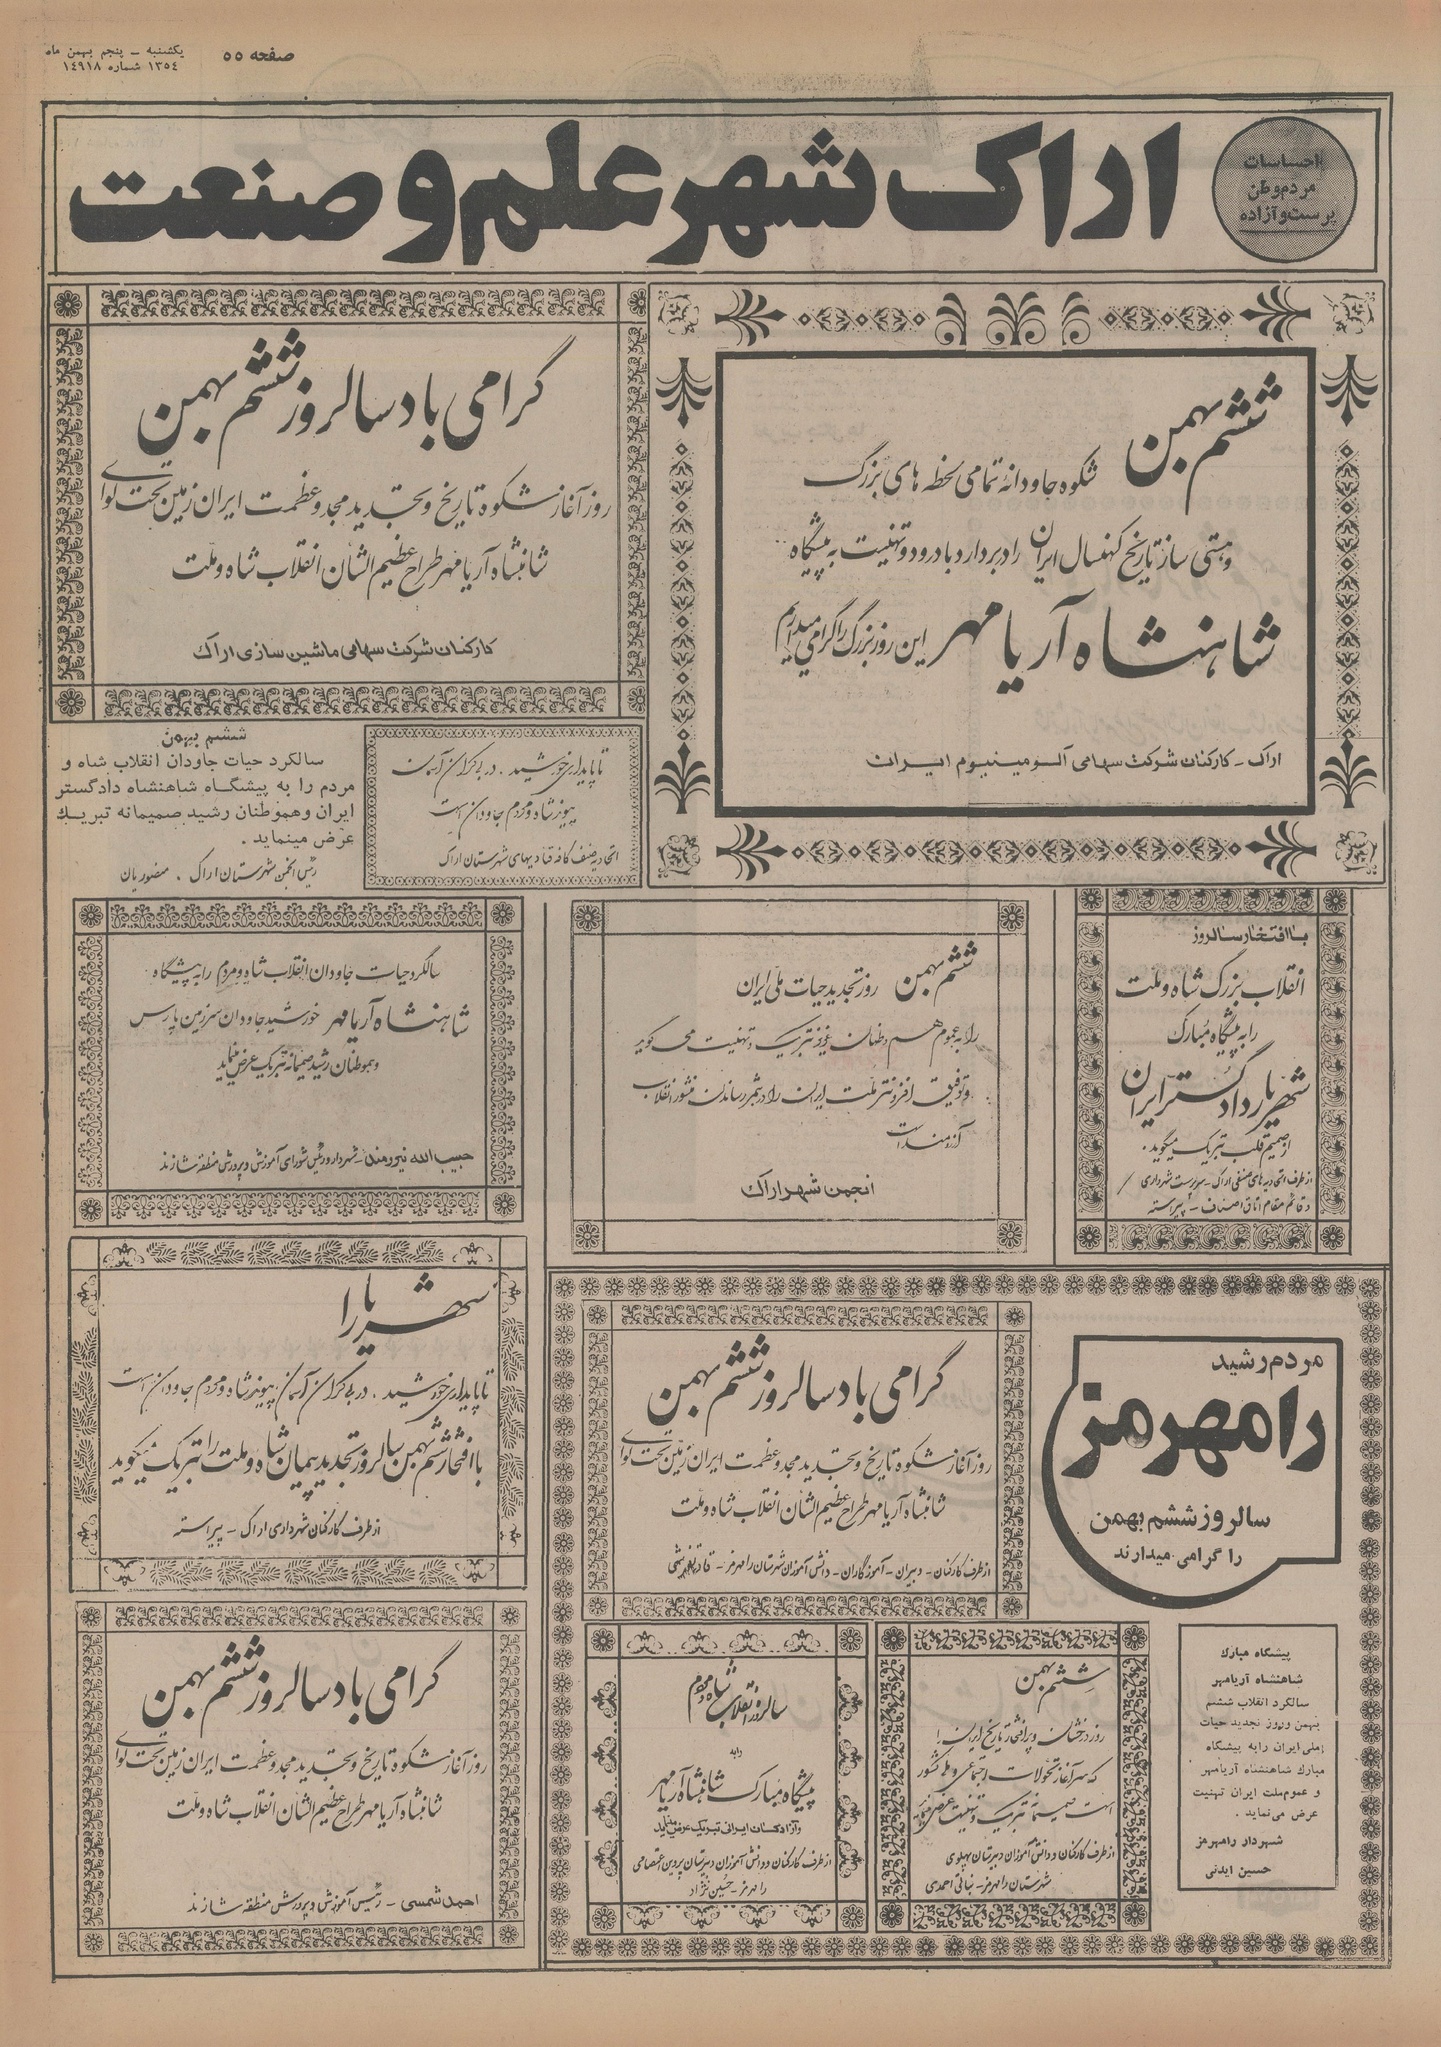 صفحه ۵۵
یکشنبه – پنجم بهمن ماه
۱۳۵۴ شماره ۱۴۹۱۸
احساسات
مردم وطن
پرست و آزاده
اراک شهر علم و صنعت
ششم بهمن
شکوه جاودانه تمامی لحظه های بزرگ
و هستی ساز تاریخ کهنسال ایران را در بر دارد با درود و تهنیت به پیشگاه
شاهنشاه آریامهر این روز بزرگ را گرامی میداریم
اراک – کارکنان شرکت سهامی آلومینیوم ایران
گرامی باد سالروز ششم بهمن
روز آغاز شکوه تاریخ و تجدید مجد و عظمت ایران زمین تحت لوای
شاهنشاه آریامهر طراح عظیم الشان انقلاب شاه و ملت
کارکنان شرکت سهامی ماشین سازی اراک
تا پایداری خورشید . در بی کران آسمان
پیوند شاه و مردم جاودان است
اتحادیه صنف کافه قنادیهای شهرستان اراک
ششم بهمن
سالگرد حیات جاودان انقلاب شاه و
مردم را به پیشگاه شاهنشاه دادگستر
ایران و هموطنان رشید صمیمانه تبریک
عرض مینماید .
رئیس انجمن شهرستان اراک . منصوریان
با افتخار سالروز
انقلاب بزرگ شاه و ملت
را به پیشگاه مبارک
شهریار دادگستر ایران
از صمیم قلب تبریک میگوید .
از طرف اتحادیه های صنفی اراک – سرپرست شهرداری
و قائم مقام اتاق اصناف – پیراسته
ششم بهمن روز تجدید حیات ملی ایران
را به عموم هم وطنان عزیز تبریک و تهنیت می گوید
و توفیق افزونتر ملت ایران را در بثمر رساندن منشور انقلاب
آرزومند است
انجمن شهر اراک
سالگرد حیات جاودان انقلاب شاه و مردم را به پیشگاه
شاهنشاه آریامهر خورشید جاودان سرزمین پارس
و هموطنان رشید صمیمانه تبریک عرض مینماید
حبیب الله نیرومند – شهردار و رئیس شورای آموزش و پرورش منطقه شازند
شهریارا
تا پایداری خورشید . در بی کران آسمان پیوند شاه و مردم جاودان است
با افتخار ششم بهمن سالروز تجدید پیمان شاه و ملت را تبریک میگوید
از طرف کارکنان شهرداری اراک – پیراسته
گرامی باد سالروز ششم بهمن
روز آغاز شکوه تاریخ و تجدید مجد و عظمت ایران زمین تحت لوای
شاهنشاه آریامهر طراح عظیم الشان انقلاب شاه و ملت
احمد شمسی – رئیس آموزش و پرورش منطقه شازند
مردم رشید
رامهرمز
سالروز ششم بهمن
را گرامی میدارند
گرامی باد سالروز ششم بهمن
روز آغاز شکوه تاریخ و تجدید مجد و عظمت ایران زمین تحت لوای
شاهنشاه آریامهر طراح عظیم الشان انقلاب شاه و ملت
از طرف کارکنان – دبیران – آموزگاران – دانش آموزان شهرستان رامهرمز –
پیشگاه مبارک
شاهنشاه آریامهر
سالگرد انقلاب ششم
بهمن و روز تجدید حیات
ملی ایران را به پیشگاه
مبارک شاهنشاه آریامهر
و عموم ملت ایران تهنیت
عرض می نماید .
شهردار رامهرمز
حسین ایدنی
ششم بهمن
روز درخشان و پرافتخار تاریخ ایران
که سرآغاز تحولات اجتماعی و ملی کشور
است صمیمانه تبریک و تهنیت عرض مینماید
از طرف کارکنان و دانش آموزان دبیرستان پهلوی
شهرستان رامهرمز – نباتی احمدی
سالروز انقلاب شاه و مردم
را به
پیشگاه مبارک شاهنشاه آریامهر
و آزادگان ایرانی تبریک عرض مینماید
از طرف کارکنان و دانش آموزان دبیرستان پروین اعتصامی
رامهرمز – حسین نژاد